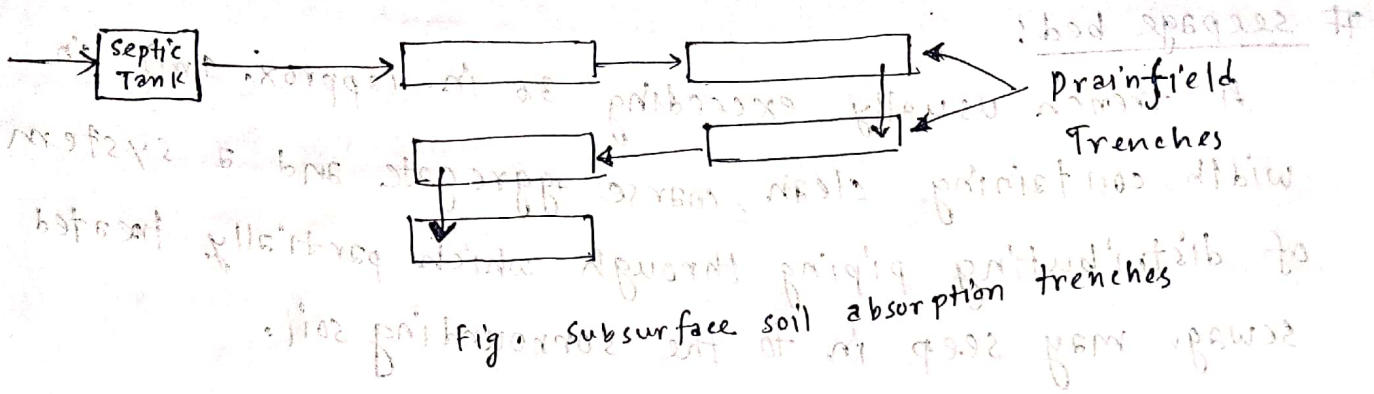 Septic
Tank
Drainfield
Trenches
Fig. Subsurface soil absorption trenches